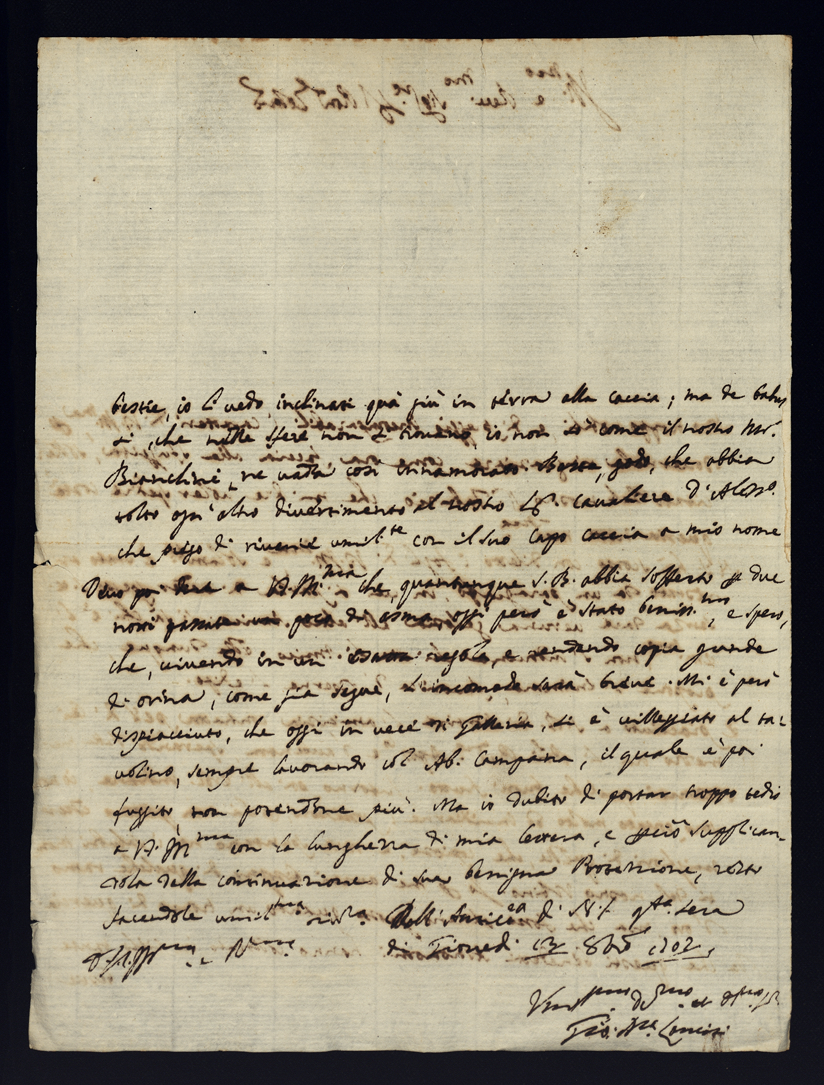 bestie, io li vedo inclinati quà giù in terra alla caccia; ma de
si, che nelle sfere non si trovano, io non so come il nostro Mr.
Bianchini ne vadi così innamorato. che abbia
tolto ogn'altro divertimento al nostro Sr. Cavaliere d'Aless.o
che prego di riverir umil.te con il suo Capo Caccia a mio nome
Devo poi dire a V.S. Ill.ma che quantunque S.B. abbia sofferto due
notti passate un poco di asma oggi però è stato beniss.mo, e spero,
che, vivendo in un' esatta regola, e rendendo copia grande
di orina, come già segue, l'incomodo sarà breve. Mi è però
dispiacciuto, che oggi in vece di Galleria, si è villeggiato al ta=
volino, sempre lavorando col Ab. Campana, il quale è poi
fuggito non potendone più. Ma io dubito di portar troppo tedio
a V.S. Ill.ma con la lunghezza di mia lettera, e perciò supplican=
dola della continuazione di sua benigna Protezzione, resto
facendole umil.ma riv.za Dell'Anticam.ra di N.S. q.ta sera
di Giovedi 8bre 1702.
D. V.S. Ill.ma e R.ma
Um.mo Dev.mo et
Gio. M.a Lancisi